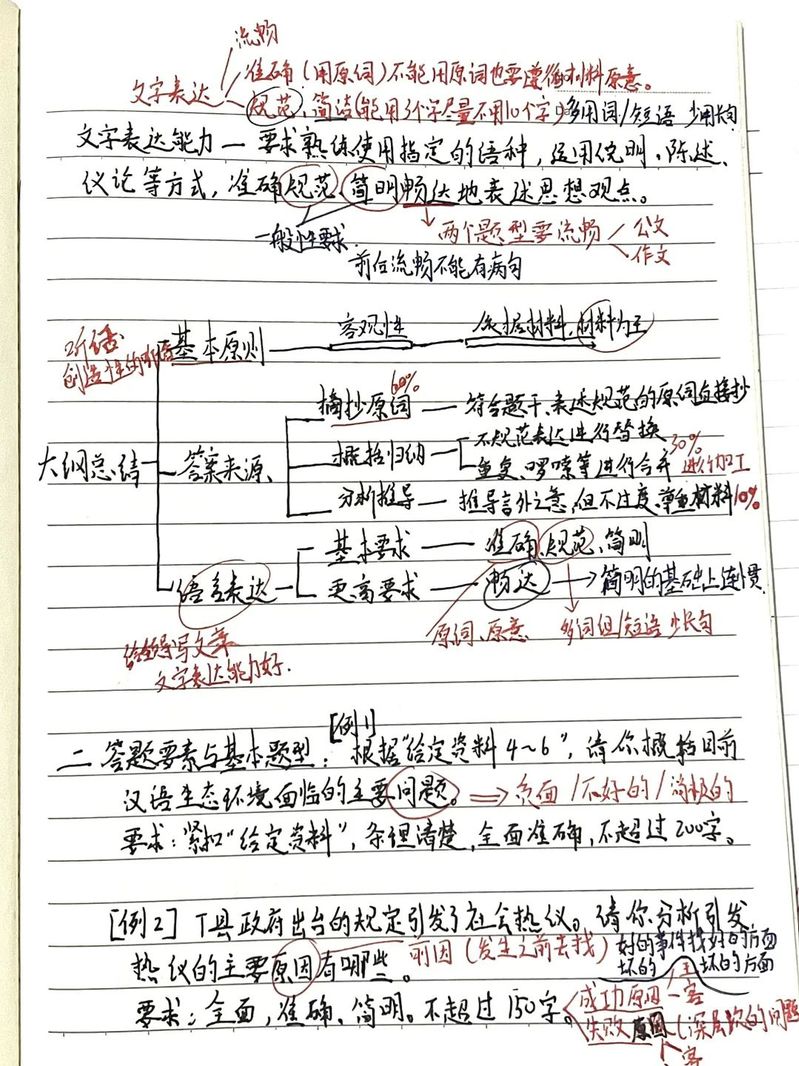 流畅
准确(用原词)不能用原词也要遵循材料原意。
文字表达
规范、简洁(能用3个字尽量不用10个字)多用词/短语 少用长句
文字表达能力 — 要求熟练使用指定的语种,运用说明、陈述、
议论等方式,准确规范、简明畅达地表述思想观点。
一般性要求
两个题型要流畅
公文
作文
前台流畅不能有病句
创造性的
基本原则
客观性
依据材料,材料为主
摘抄原词 60%
符合题干、表述规范的原词直接抄
大纲总结
答案来源、
概括归纳
不规范表达进行替换
重复、啰嗦等进行合并 30%
进行加工
分析推导
推导言外之意,但不过度,尊重材料 10%
语言表达
基本要求
准确、规范、简明
更高要求
畅达
简明的基础上连惯.
原词、原意
多词组/短语 少长句
给领导写文章
文字表达能力好.
[例1]
二 答题要素与基本题型: 根据“给定资料4~6”,请你概括目前
汉语生态环境面临的主要问题。 => 负面/不好的/消极的
要求:紧扣“给定资料”,条理清楚,全面准确,不超过200字。
[例2] T县政府出台的规定引发了社会热议。请你分析引发
热议的主要原因有哪些。 前因(发生之前去找)
好的事件找好的方面
坏的 坏的方面
要求:全面,准确、简明。不超过150字。
主
成功原因 客
失败原因 (深层次的问题
客